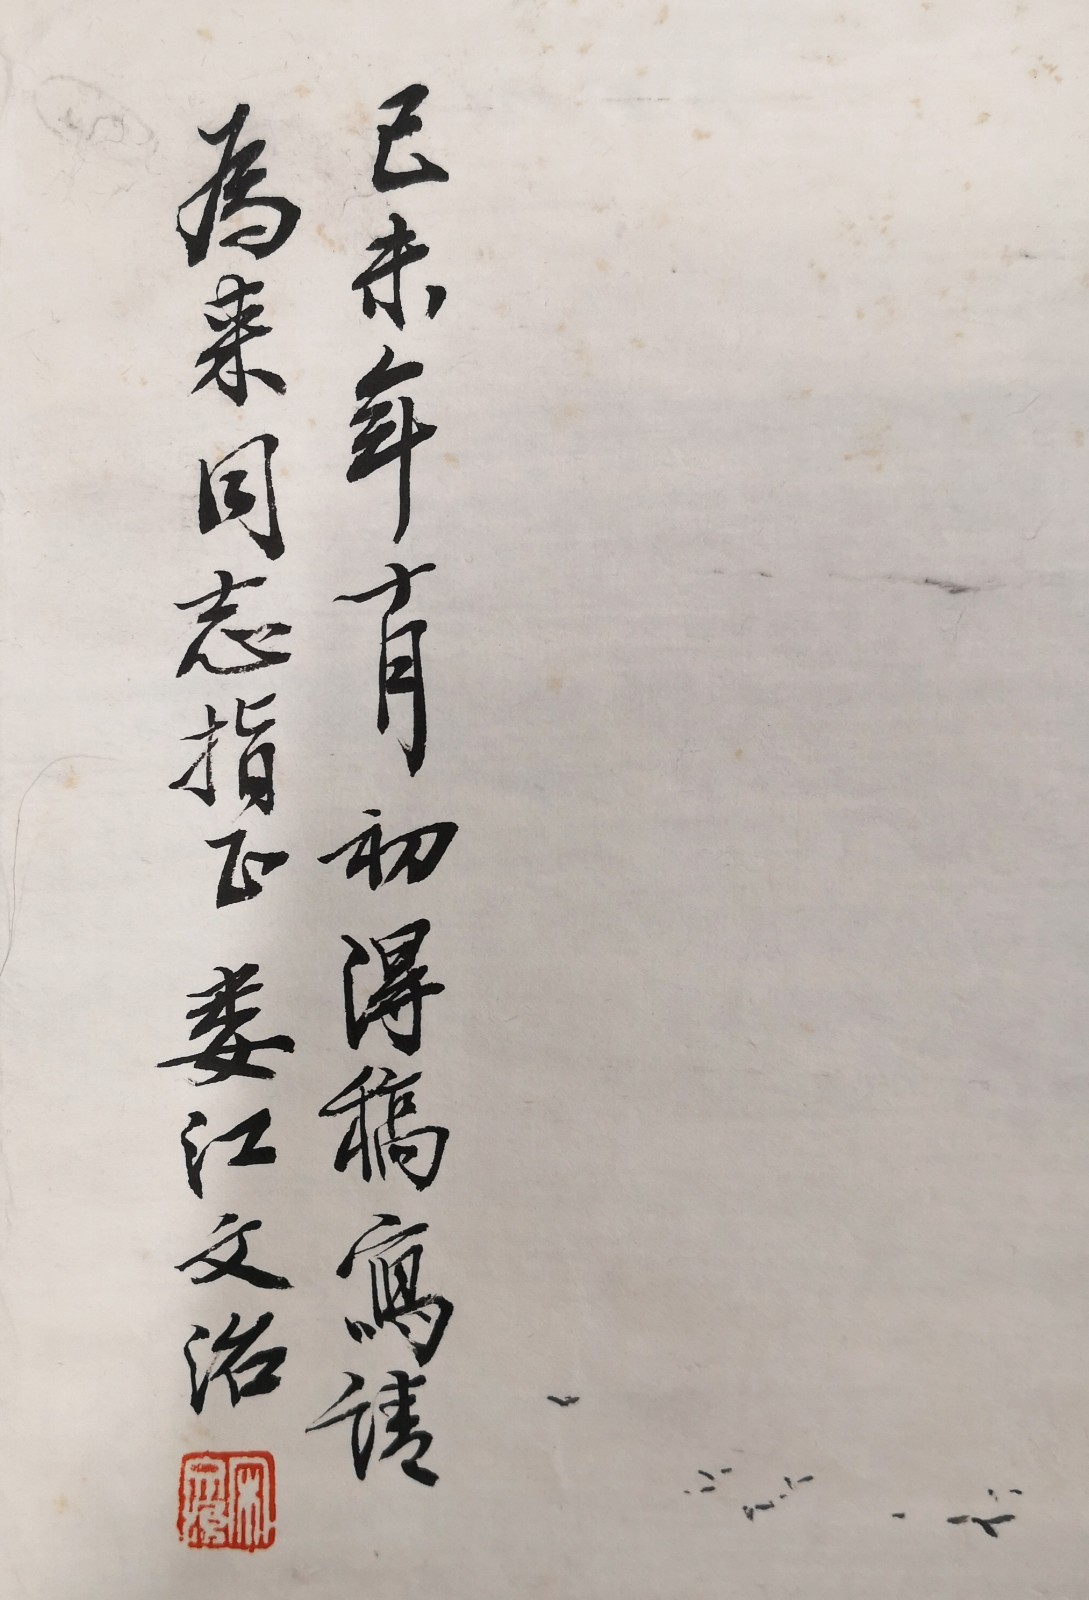 己未年十月初得稿寫請
為来同志指正 娄江文治